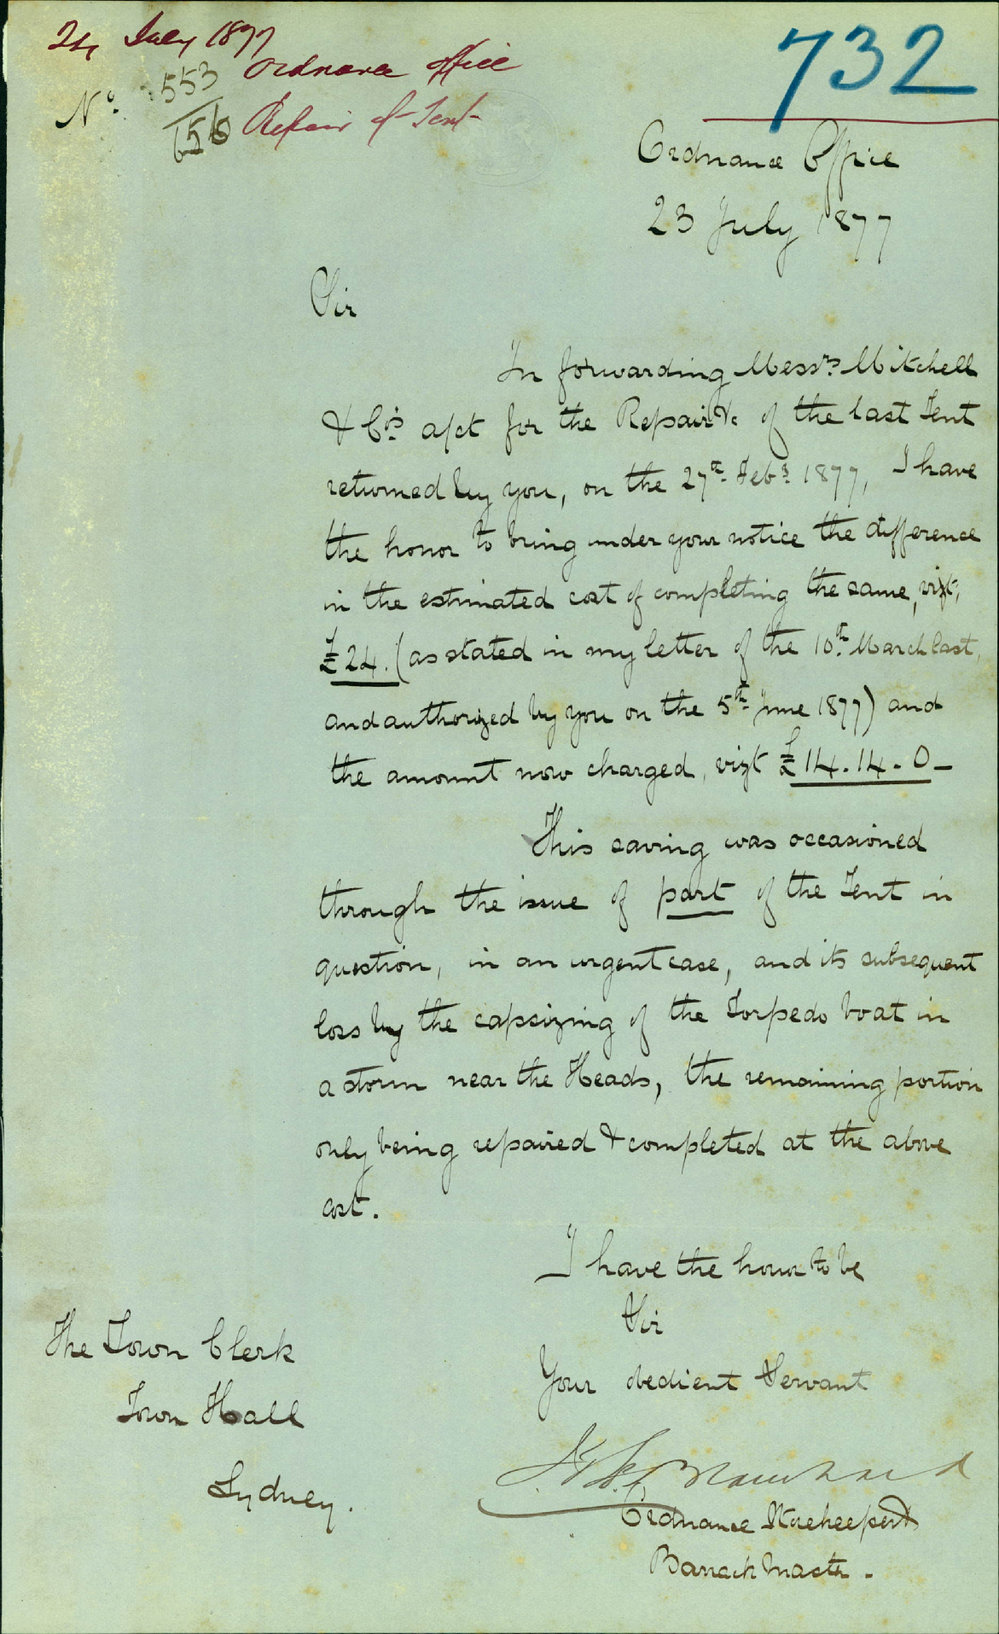 24 July 1877
Ordnance Office
732
No. 553
Repair of Tent
Ordnance Office
23 July 1877
Sir
In forwarding Messrs Mitchell
& Co's a/ct for the Repair &c of the last Tent
returned by you, on the 27th Feby 1877, I have
the honor to bring under your notice the difference
in the estimated cost of completing the same, vizt,
£24. (as stated in my letter of the 10th March last,
and authorized by you on the 5th June 1877) and
the amount now charged, vizt £14.14.0-
This saving was occasioned
through the issue of part of the Tent in
question, in an urgent case, and its subsequent
loss by the capsizing of the Torpedo boat in
a storm near the Heads, the remaining portion
only being repaired & completed at the above
cost.
I have the honor to be
Sir
Your obedient Servant
Ordnance Storekeeper &
Barrack Master.
The Town Clerk
Town Hall
Sydney.